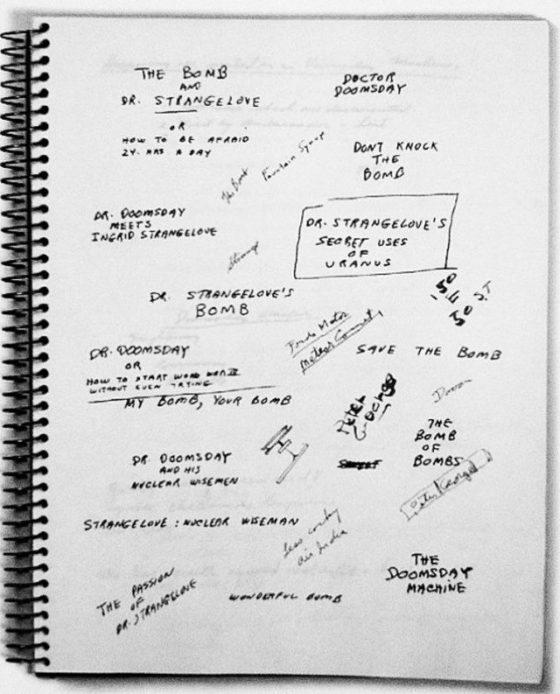 THE BOMB
AND
DR. STRANGELOVE
OR
HOW TO BE AFRAID
24. HRS A DAY
DOCTOR
DOOMSDAY
DONT KNOCK
THE
BOMB
The Bomb
Fountain
DR. DOOMSDAY
MEETS
INGRID STRANGELOVE
Strange
DR. STRANGELOVE'S
SECRET USES
OF
URANUS
DR. STRANGELOVE'S
BOMB
50
DR. DOOMSDAY
OR
HOW TO START WORLD WAR III
WITHOUT EVEN TRYING
SAVE THE BOMB
MY BOMB, YOUR BOMB
Peter
George
THE
BOMB
OF
BOMBS
DR. DOOMSDAY
AND HIS
NUCLEAR WISEMEN
Peter George
STRANGELOVE: NUCLEAR WISEMAN
air India
THE PASSION
OF
DR. STRANGELOVE
WONDERFUL BOMB
THE
DOOMSDAY
MACHINE